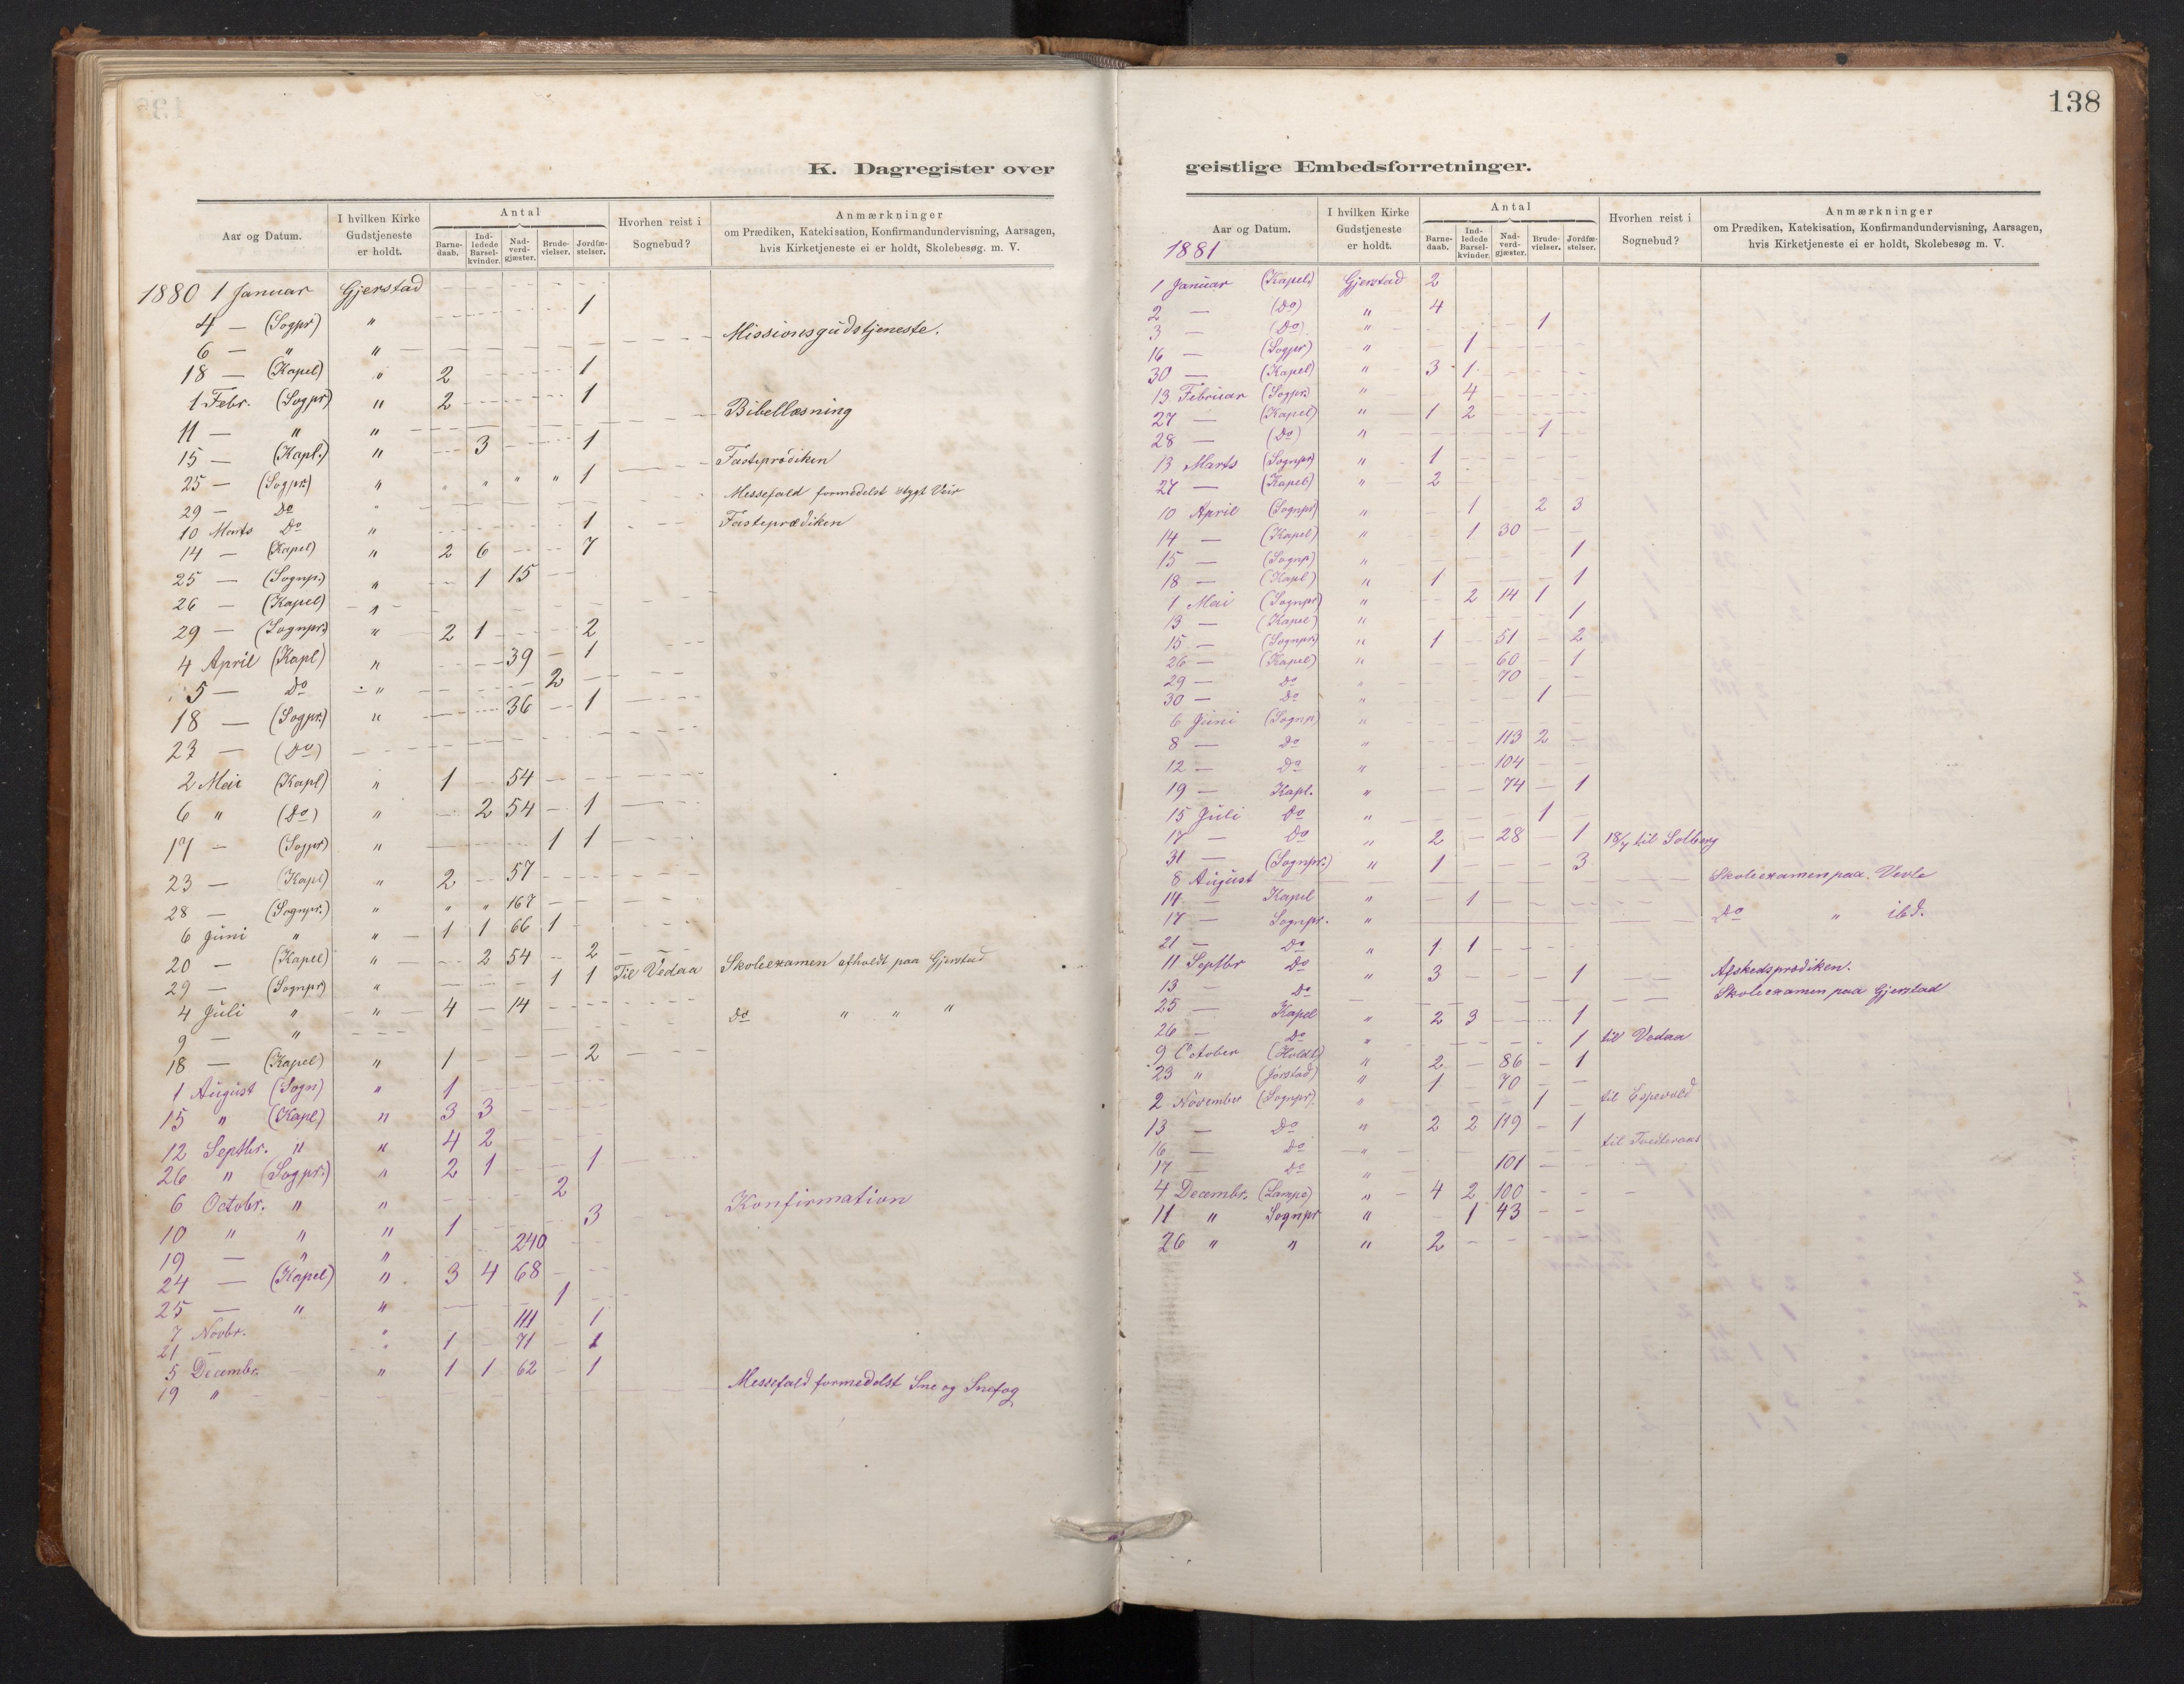 138
K. Dagregister over
geistlige Embedsforretninger.
Aar og Datum. I hvilken Kirke Gudstjeneste er holdt. Antal Barne-daab. Ind-ledede Barsel-kvinder. Nad-verd-gjæster. Brude-vielser. Jordfæ-stelser. Hvorhen reist i Sognebud? Anmærkninger om Prædiken, Katekisation, Konfirmandundervisning, Aarsagen, hvis Kirketjeneste ei er holdt, Skolebesøg. m. V.
1880 1 Januar Gjerstad
4 — (Sogpr) " 1
6 — " " Missionsgudstjeneste.
18 — (Kapel) " 2 1
1 Febr. (Sogpr) " 2 1
11 — " " Bibellæsning
15 — (Kapl.) " 3 1
25 — (Sogpr.) " " " " " 1 Fasteprædiken
29 — Do " Messefald formedelst stygt Veir
10 Marts Do " 1 Fasteprædiken
14 — (Kapel) " 2 6 7
25 — (Sognp.) " 1 15
26 — (Kapel) "
29 — (Sognpr.) " 2 1 2
4 April (Kapl) " 39 1
5 — Do " 2
18 — (Sogpr.) " 36 1
23 — (Do)
2 Mai (Kapl) " 1 54
6 " (Do) " 2 54 1
17 — (Sogpr) " 1 1
23 — (Kapl) " 2 57
28 — (Sognpr.) " " " 167
6 Juni " " 1 1 66 1
20 — (Kapel) " 2 54 2
29 — (Sognpr) " 1 1 Til Vedaa Skoleexamen afholdt paa Gjerstad
4 Juli " " 4 — 14
9 — " Do " " "
18 — (Kapel) " 1 2
1 August (Sogn) " 1
15 " (Kapl) " 3 3
12 Septbr. " " 4 2
26 " (Sogpr.) " 2 1 1
6 Octobr. " " 2
10 " " " 1 3 Konfirmation
19 — " " 240
24 — (Kapel) " 3 4 68
25 — " " 1
7 Novbr. " 111 1
21 — " 1 71 1
5 Decembr. " 1 1 62 1
19 " Messefald formedelst Sne og Snefog
Aar og Datum. I hvilken Kirke Gudstjeneste er holdt. Antal Barne-daab. Ind-ledede Barsel-kvinder. Nad-verd-gjæster. Brude-vielser. Jordfæ-stelser. Hvorhen reist i Sognebud? Anmærkninger om Prædiken, Katekisation, Konfirmandundervisning, Aarsagen, hvis Kirketjeneste ei er holdt, Skolebesøg m. V.
1881
1 Januar (Kapel) Gjerstad 2
2 — (Do) " 4
3 — (Do) " 1
16 — (Sogpr) " 1
30 — (Kapel) " 3 1
13 Februar (Sogpr.) " 4
27 — (Kapel) " 1 2
28 — (Do) " 1
13 Marts (Sognpr) " 1
27 — (Kapel) " 2
10 April (Sognpr) " 1 2 3
14 — (Kapel) " 1 30
15 — (Sognp) " 1
18 — (Kapl) " 1 1
1 Mai (Sognpr) " 2 14 1
13 — (Kapel) " 1
15 — (Sognpr.) " 1 51 2
26 — (Kapel) " 60 1
29 — Do " 70
30 — Do " 1
6 Juni (Sognp) "
8 — Do " 113 2
12 — Do " 104
19 — Kapl. " 74 1
15 Juli Do " 1
17 — Do " 2 28 1 18/7 til Solberg
31 — (Sognpr.) " 1 3
8 August Skoleexamen paa Vevle
14 — Kapel " 1
17 — Sognpr. " Do " ibd.
21 — Do " 1 1
11 Septbr Do " 3 1 Afskedsprædiken.
13 — Do Skoleexamen paa Gjerstad
25 — Kapel " 2 3 1
26 — Do " 1 til Vedaa
9 October (Holdt) " 2 86 1
23 " (Jørstad) " 1 70
2 November (Sognpr.) " 1 til Espevold
13 — Do " 2 2 119 1
16 — Do "
17 — Do " 101
4 Decembr. " 4 2 100
11 " Sognpr " 1 43
26 " " " 2